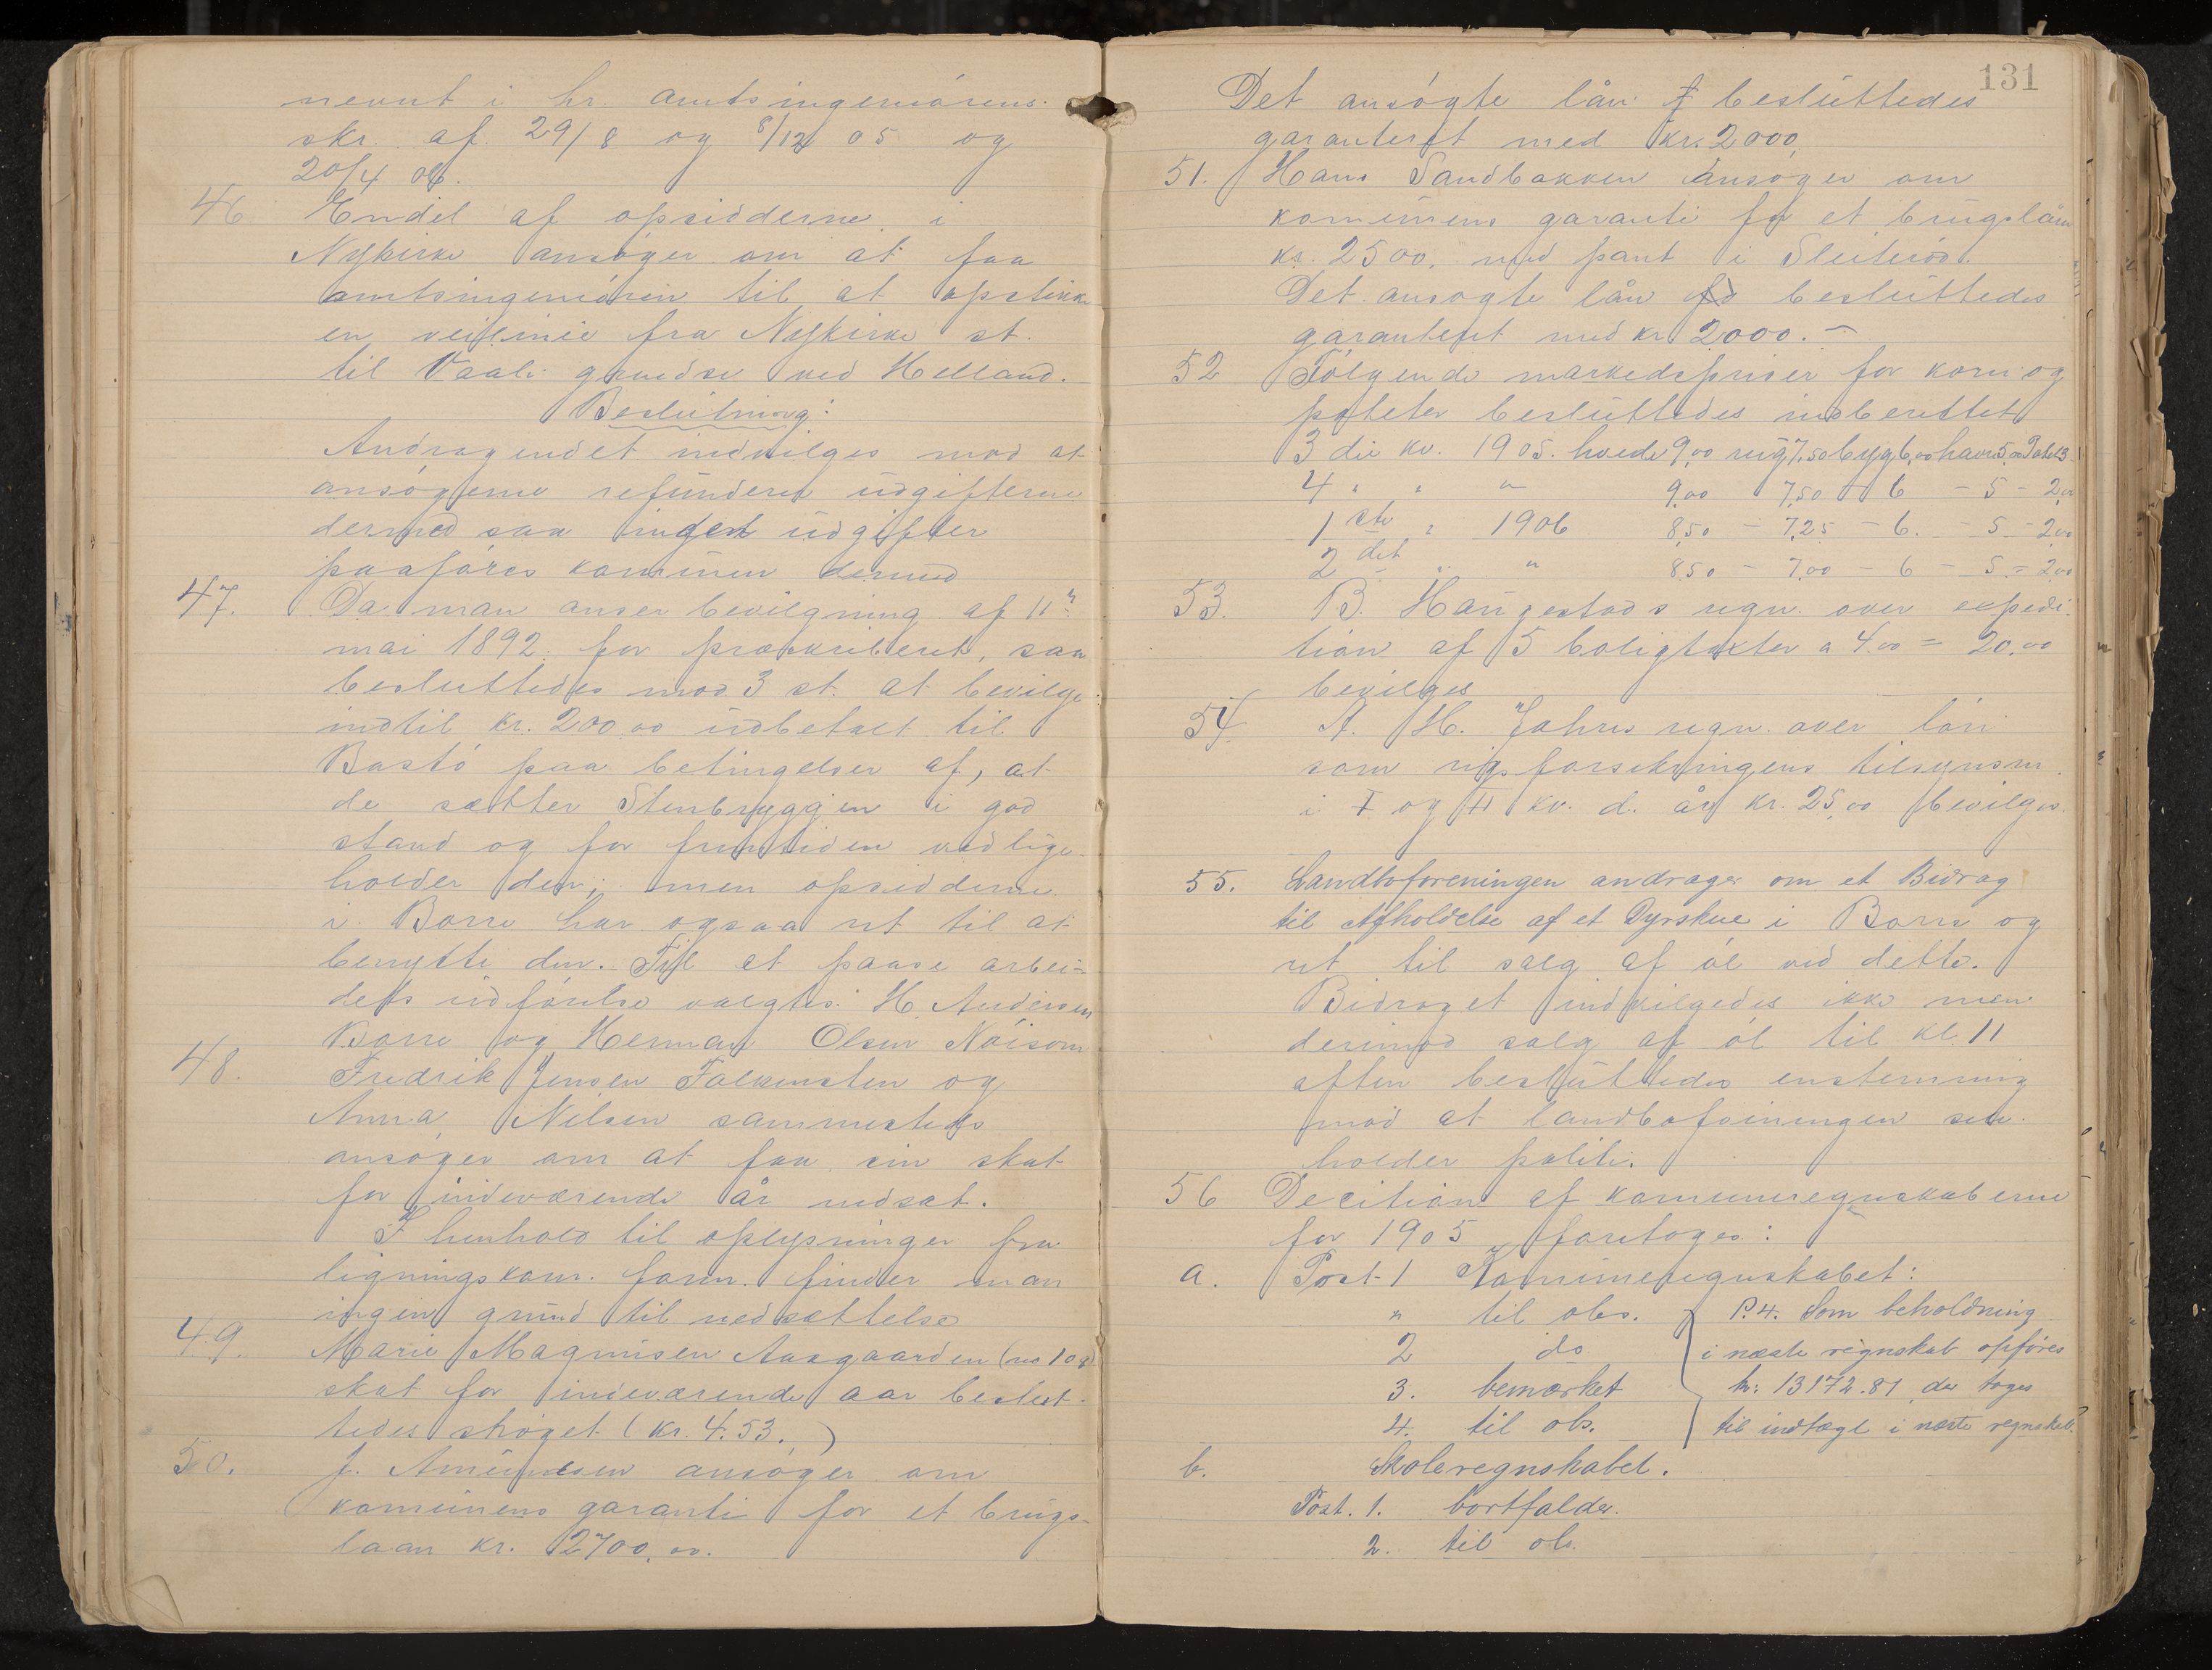 nevnt i hr. amtsingeniørens
skr. af 29/8 og 8/12 05 og
20/4 06.
46 Endel af opsidderne i
Nykirke ansøger om at faa
amtsingeniøren til at opstikke
en veilinie fra Nykirke st.
til Vaale grændse ved Helland.
Beslutning:
Andragendet indvilges mod at
ansøgerne refunderer udgifterne
dermed saa ingen udgifter
paaføres kommunen dermed
47. Da man anser bevilgning af 11te
mai 1892 for præskriberet, saa
besluttedes mod 3 st. at bevilge
indtil kr. 200,00 udbetalt til
Bastø paa betingelser af, at
de sætter Stenbryggen i god
stand og for fremtiden vedlige-
holder den; men opsidderne
i Borre har ogsaa ret til at
benytte den. Til at paase arbei-
dets udførelse valgtes: H. Andersen
Borre og Herman Olsen Nøisom
48. Fredrik Jensen Falkensten og
Anna Nilsen sammesteds
ansøger om at faa sin skat
for indeværende år nedsat.
I henhold til oplysninger fra
ligningskom. form. finder man
ingen grund til nedsættelse
49. Marie Magnusen Aasgaarden (no 108)
skat for indeværende aar beslut-
tedes strøget (kr. 4.53.)
50. J. Amundsen ansøger om
kommunens garanti for et brugs-
laan kr. 2700,00.
131
Det ansøgte lån besluttedes
garanteret med kr. 2000,
51. Hans Sandbakken ansøger om
kommunens garanti for et brugslån
kr. 2500, med pant i
Det ansøgte lån besluttedes
garanteret med kr 2000.-
52 Følgende markedspriser for korn og
poteter besluttedes indberettet
3 die kv. 1905. hvede 9,00 rug 7,50 byg 6,00 havre 5,00 Potet 3
4 " " " 9,00 7,50 - 6 - 5 - 2,00
1 ste " 1906 8,50 - 7,25 - 6. - 5 - 2,00
2 det " " 8,50 - 7,00 - 6 - 5 - 2,00
53. B. Haugestads regn. over expedi-
tion af 5 boligtakter a 4,00 = 20,00
bevilges
54. A. H. Jahres regn. over løn
som rigsforsikringens tilsynsm.
i I og II kv. d. år kr. 25,00 bevilges.
55. Landboforeningen andrager om et Bidrag
til Afholdelse af et Dyrskue i Borre og
ret til salg af øl ved dette.
Bidraget indvilgedes ikke men
derimod salg af øl til kl. 11
aften besluttedes enstemmig
mod at landboforeningen selv
holder politi.
56 Decition af kommuneregnskaberne
for 1905 foretoges:
a. Post 1 Kommuneregnskabet:
" til obs. P. 4. Som beholdning
2 do i næste regnskab opføres
3. bemærket kr. 13172.81 der tages
4. til obs. til indtægt i næste regnskab.
b. Skoleregnskabet.
Post. 1. bortfalder.
2. til obs.